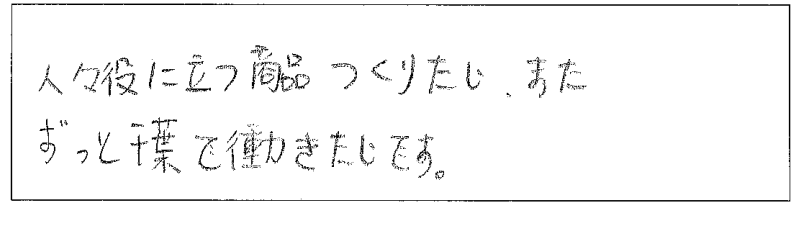 人々役に立つ商品つくりたい、また
ずっと千葉で働きたいです。